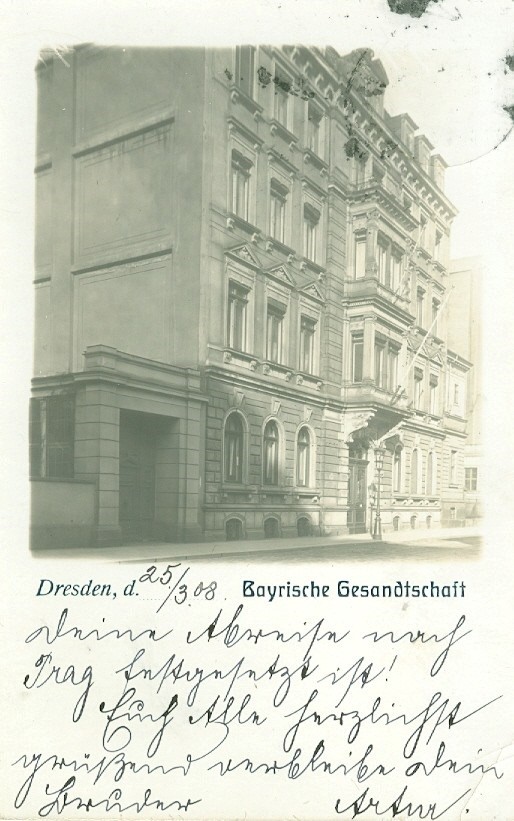 Dresden, d. 25/3.08. Bayrische Gesandtschaft
Deine Abreise nach
Prag festgesetzt ist!
Euch Alle herzlichst
grüßend verbleibe Dein
Bruder Artur.